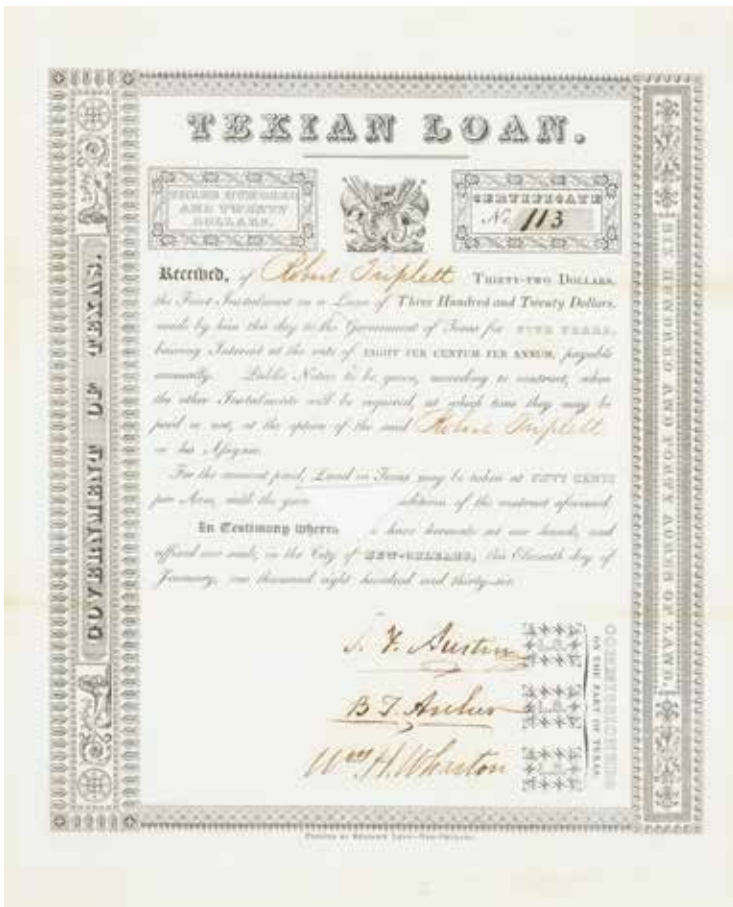 TEXIAN LOAN.
THREE HUNDRED
AND TWENTY
DOLLARS.
CERTIFICATE
No. 113
Received, of Robert Triplett THIRTY-TWO DOLLARS,
the First Instalment on a Loan of Three Hundred and Twenty Dollars,
made by him this day to the Government of Texas for FIVE YEARS,
bearing Interest at the rate of EIGHT PER CENTUM PER ANNUM, payable
annually. Public Notice to be given, according to contract, when
the other Instalments will be required, at which time they may be
paid or not, at the option of the said Robert Triplett
or his Assignee.
For the amount paid, Land in Texas may be taken at FIFTY CENTS
per Acre, with the conditions of the contract aforesaid.
In Testimony whereof have hereunto set our hands, and
affixed our seals, in the City of NEW-ORLEANS, this Eleventh day of
January, one thousand eight hundred and thirty-six.
S. F. Austin L.S.
B T Archer L.S.
Wm H. Wharton L.S.
COMMISSIONERS
ON THE PART OF TEXAS.
GOVERNMENT OF TEXAS.
SIX HUNDRED AND FORTY ACRES OF LAND.
PRINTED BY BENJAMIN LEVY—NEW-ORLEANS.